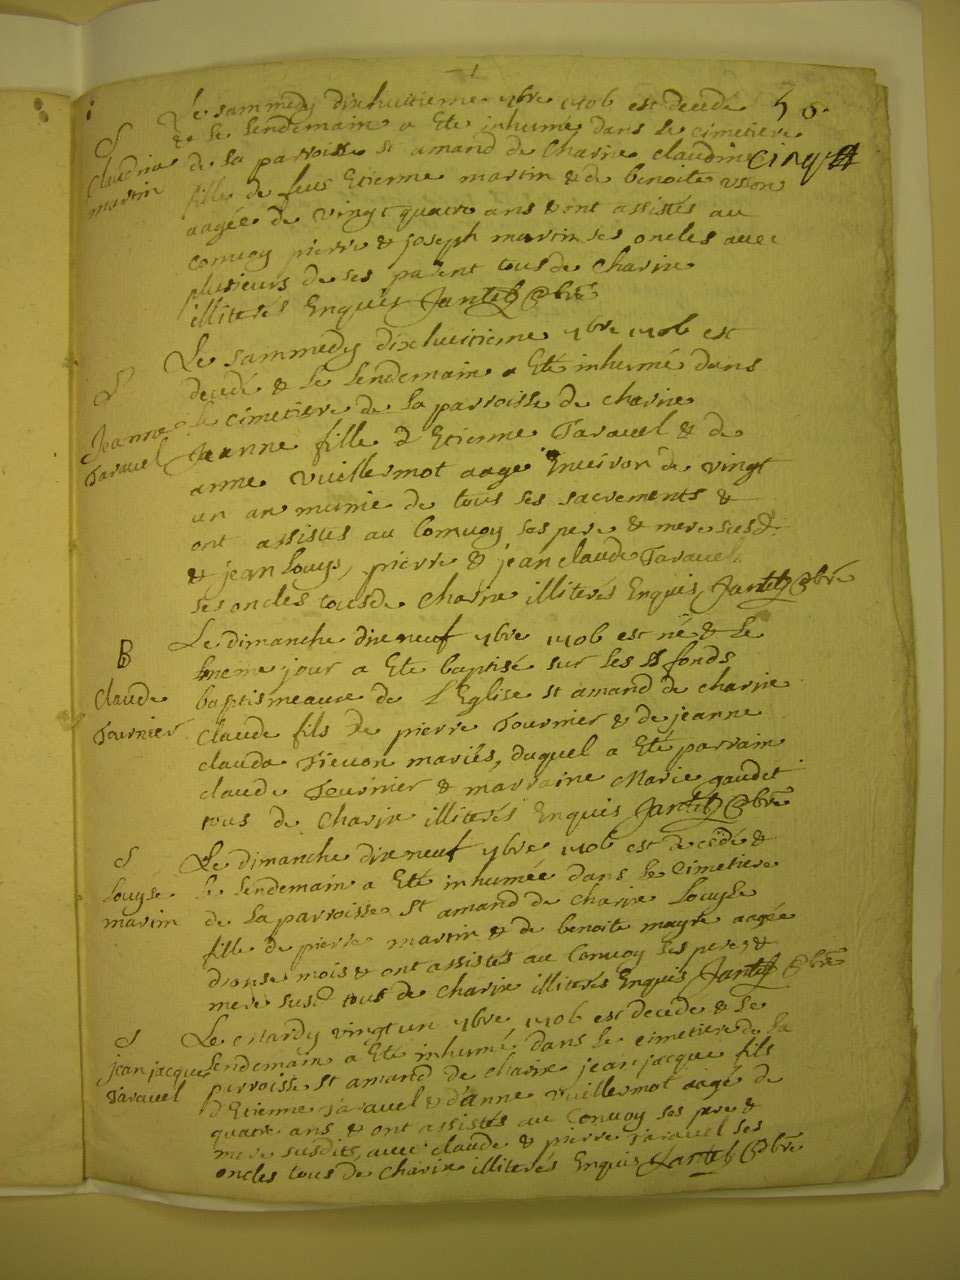 5 o.
cinq
S
Claudine
martin
Le sammedy dixhuitieme 7bre 1706 est decedé
& le lendemain a Eté inhumé dans le cimetiere
de la parroisse st amand de Charix claudine
fille de feus Etienne martin & de benoite
aagée de vingt quatre ans & ont assistés au
convoy pierre & joseph martin ses oncles avec
plusieurs de ses parent tous de Charix
illiterés Enquis
S
Jeanne
Taravel
Le sammedy dixhuitieme 7bre 1706 est
decedé & le lendemain a Eté inhumé dans
le cimetiere de la parroisse de charix
Jeanne fille d Etienne Taravel & de
anne vuillermot aagé Environ de vingt
un an munie de tous ses sacrements &
ont assistés au Convoy ses pere & mere susd.
& jean Louys, pierre & jean claude Taravel
ses oncles tous de Charix illiterés Enquis
B
Claude
Tournier
Le dimanche dix neuf 7bre 1706 est né & le
meme jour a Eté baptisé sur les fonds
baptismeaux de l'Eglise st amand de charix
claude fils de pierre Tournier & de jeanne
clauda mariés, duquel a Eté parrain
claude Tournier & marraine Marie gaudet
tous de Charix illiterés Enquis
S
Louyse
martin
Le dimanche dix neuf 7bre 1706 est decedé &
le lendemain a Eté inhumée dans le Cimetiere
de la parroisse st amand de Charix Louyse
fille de pierre martin & de benoite aagée
d'onse mois & ont assistés au Convoy ses pere &
mere susd. tous de Charix illiterés Enquis
S
jean jacque
Taravel
Le Mardy vingt un 7bre 1706 est decedé & le
lendemain a Eté inhumé dans le cimetiere de la
parroisse st amand de charix jean jacque fils
d'Etienne Taravel & d'anne vuillermot aagé de
quatre ans & ont assistés au Convoy ses pere &
mere susdits, avec claude & pierre Taravel ses
oncles tous de Charix illiterés Enquis